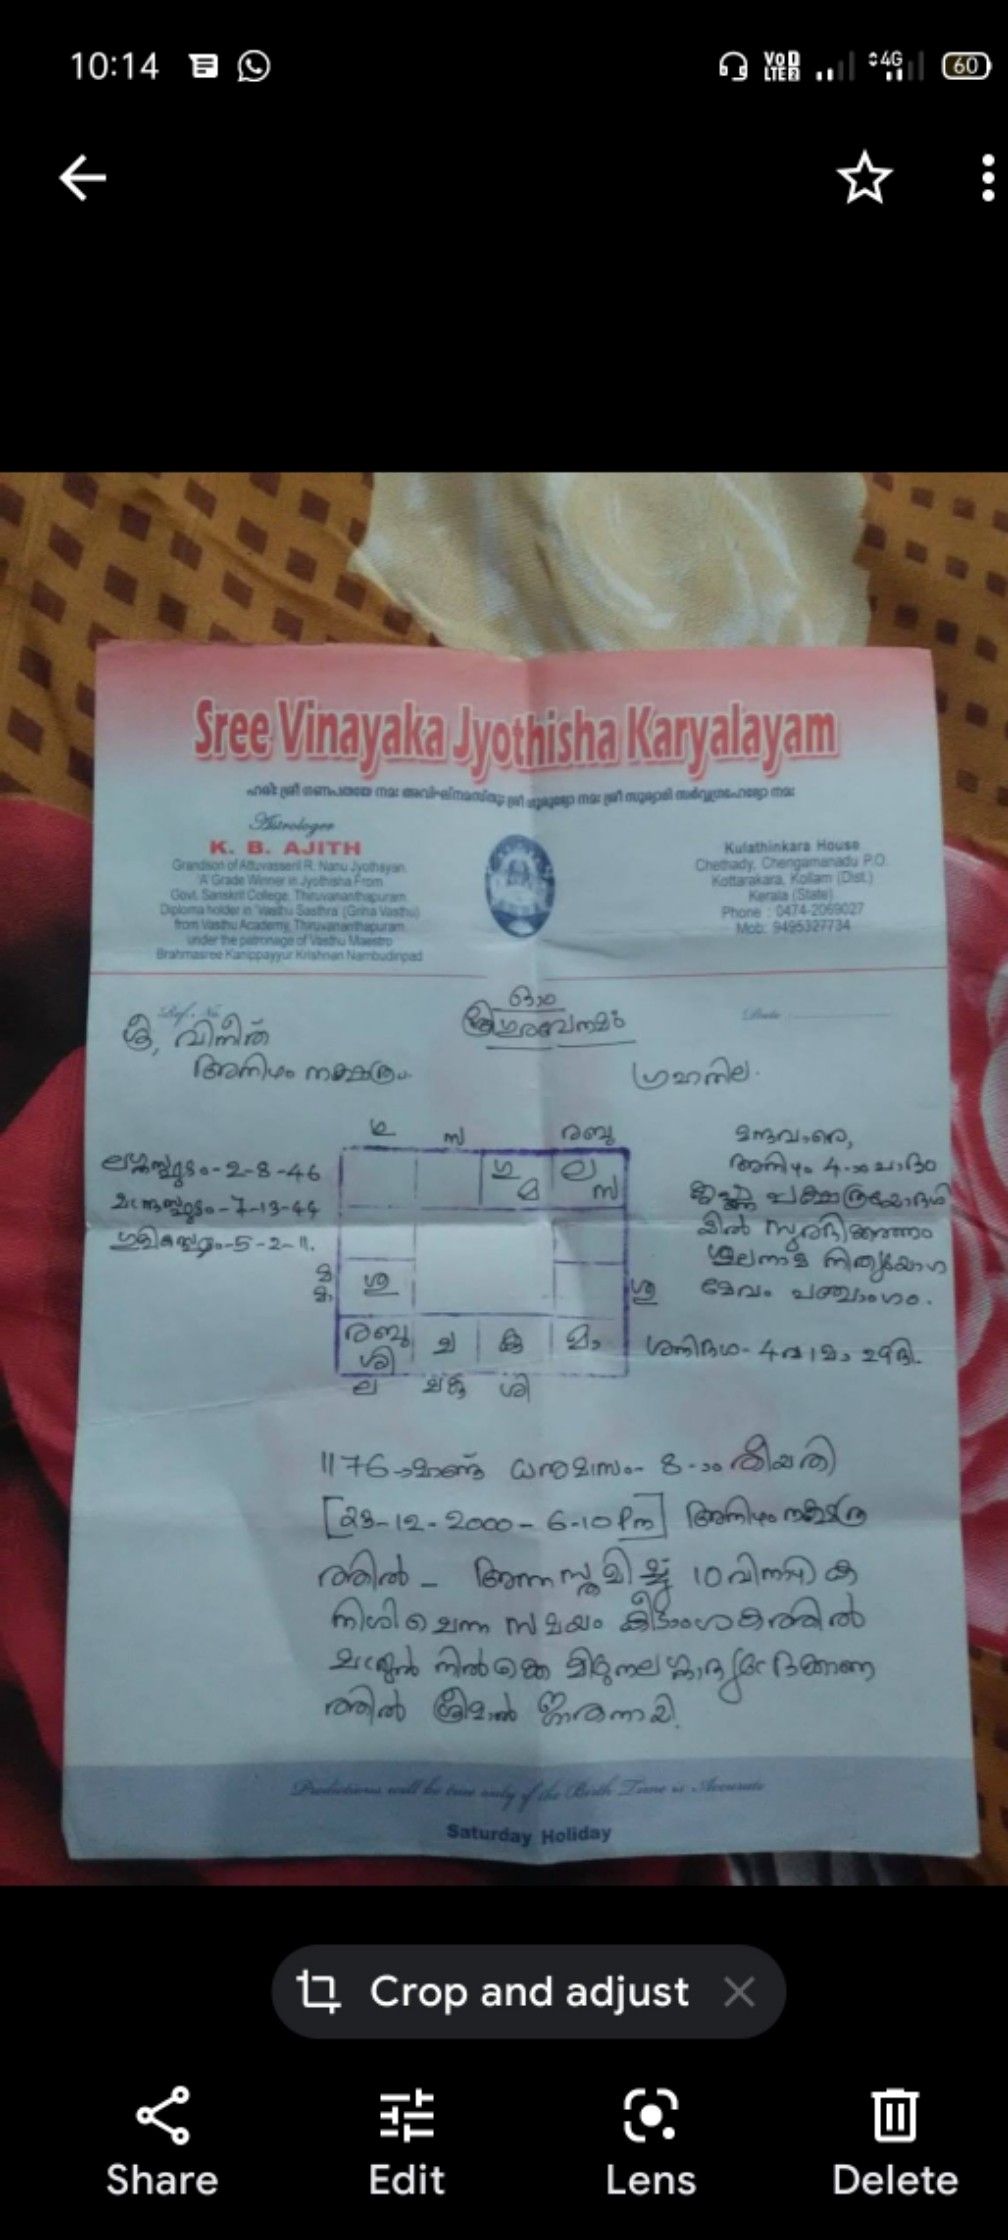 10:14
VoD LTE2 4G 60
Sree Vinayaka Jyothisha Karyalayam
ഹരി: ശ്രീ ഗണപതയേ നമ: അവിഘ്നമസ്തു: ശ്രീ ഗുരുഭ്യോ നമ: ശ്രീ സൂര്യാദി സർവ്വഗ്രഹേഭ്യോ നമ:
Astrologer
K. B. AJITH
Grandson of Attuvasseril R. Nanu Jyothsyan
'A' Grade Winner in Jyothisha From
Govt. Sanskrit College, Thiruvananthapuram
Diploma holder in 'Vasthu Sasthra (Griha Vasthu)
from Vasthu Academy, Thiruvananthapuram
under the patronage of Vasthu Maestro
Brahmasree Kanippayyur Krishnan Nambudiripad
Kulathinkara House
Chethady, Chengamanadu P.O.
Kottarakara, Kollam (Dist.)
Kerala (State)
Phone : 0474-2069027
Mob: 9495327734
Ref. No.
Date
ഓം
ശ്രീ, വിനീത്
അനിഴം നക്ഷത്രം
ഗ്രഹനില.
ലഗ്നസ്ഫുടം-2-8-46
ചന്ദ്രസ്ഫുടം-7-13-44
ഗുളികസ്ഫുടം-5-2-11.
ഗു സ രബു
ഗു മ ല സ
മ മാ ശു ശു
രബു ശി ച കു മാ
ല ചകു ശി
മന്ദവാരെ,
അനിഴം 4-ാം പാദം
കൃഷ്ണ പക്ഷത്രയോദശി
യിൽ സുരഭിക്കരണം
ശൂലനാമ നിത്യയോഗ
മേവം പഞ്ചാംഗം.
ശനിദശ-4വ 1മാ 29ദി.
1176-ാമാണ്ട് ധനുമാസം- 8-ാം തീയതി
[23-12-2000-6-10 Pm] അനിഴം നക്ഷത്ര
ത്തിൽ - അന്നസ്തമിച്ച് 10 വിനാഴിക
നിശി ചെന്ന സമയം കീടാംശകത്തിൽ
ചന്ദ്രൻ നിൽക്കെ മിഥുനലഗ്നാദ്യദ്രേക്കാണ
ത്തിൽ ശ്രീമാൻ ജാതനായി.
Predictions will be true only if the Birth Time is Accurate
Saturday Holiday
Crop and adjust
Share
Edit
Lens
Delete